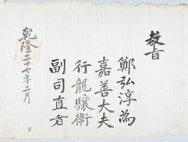 教旨
鄭弘淳為
嘉善大夫
行龍驤衛
副司直者
乾隆二十七年二月 日